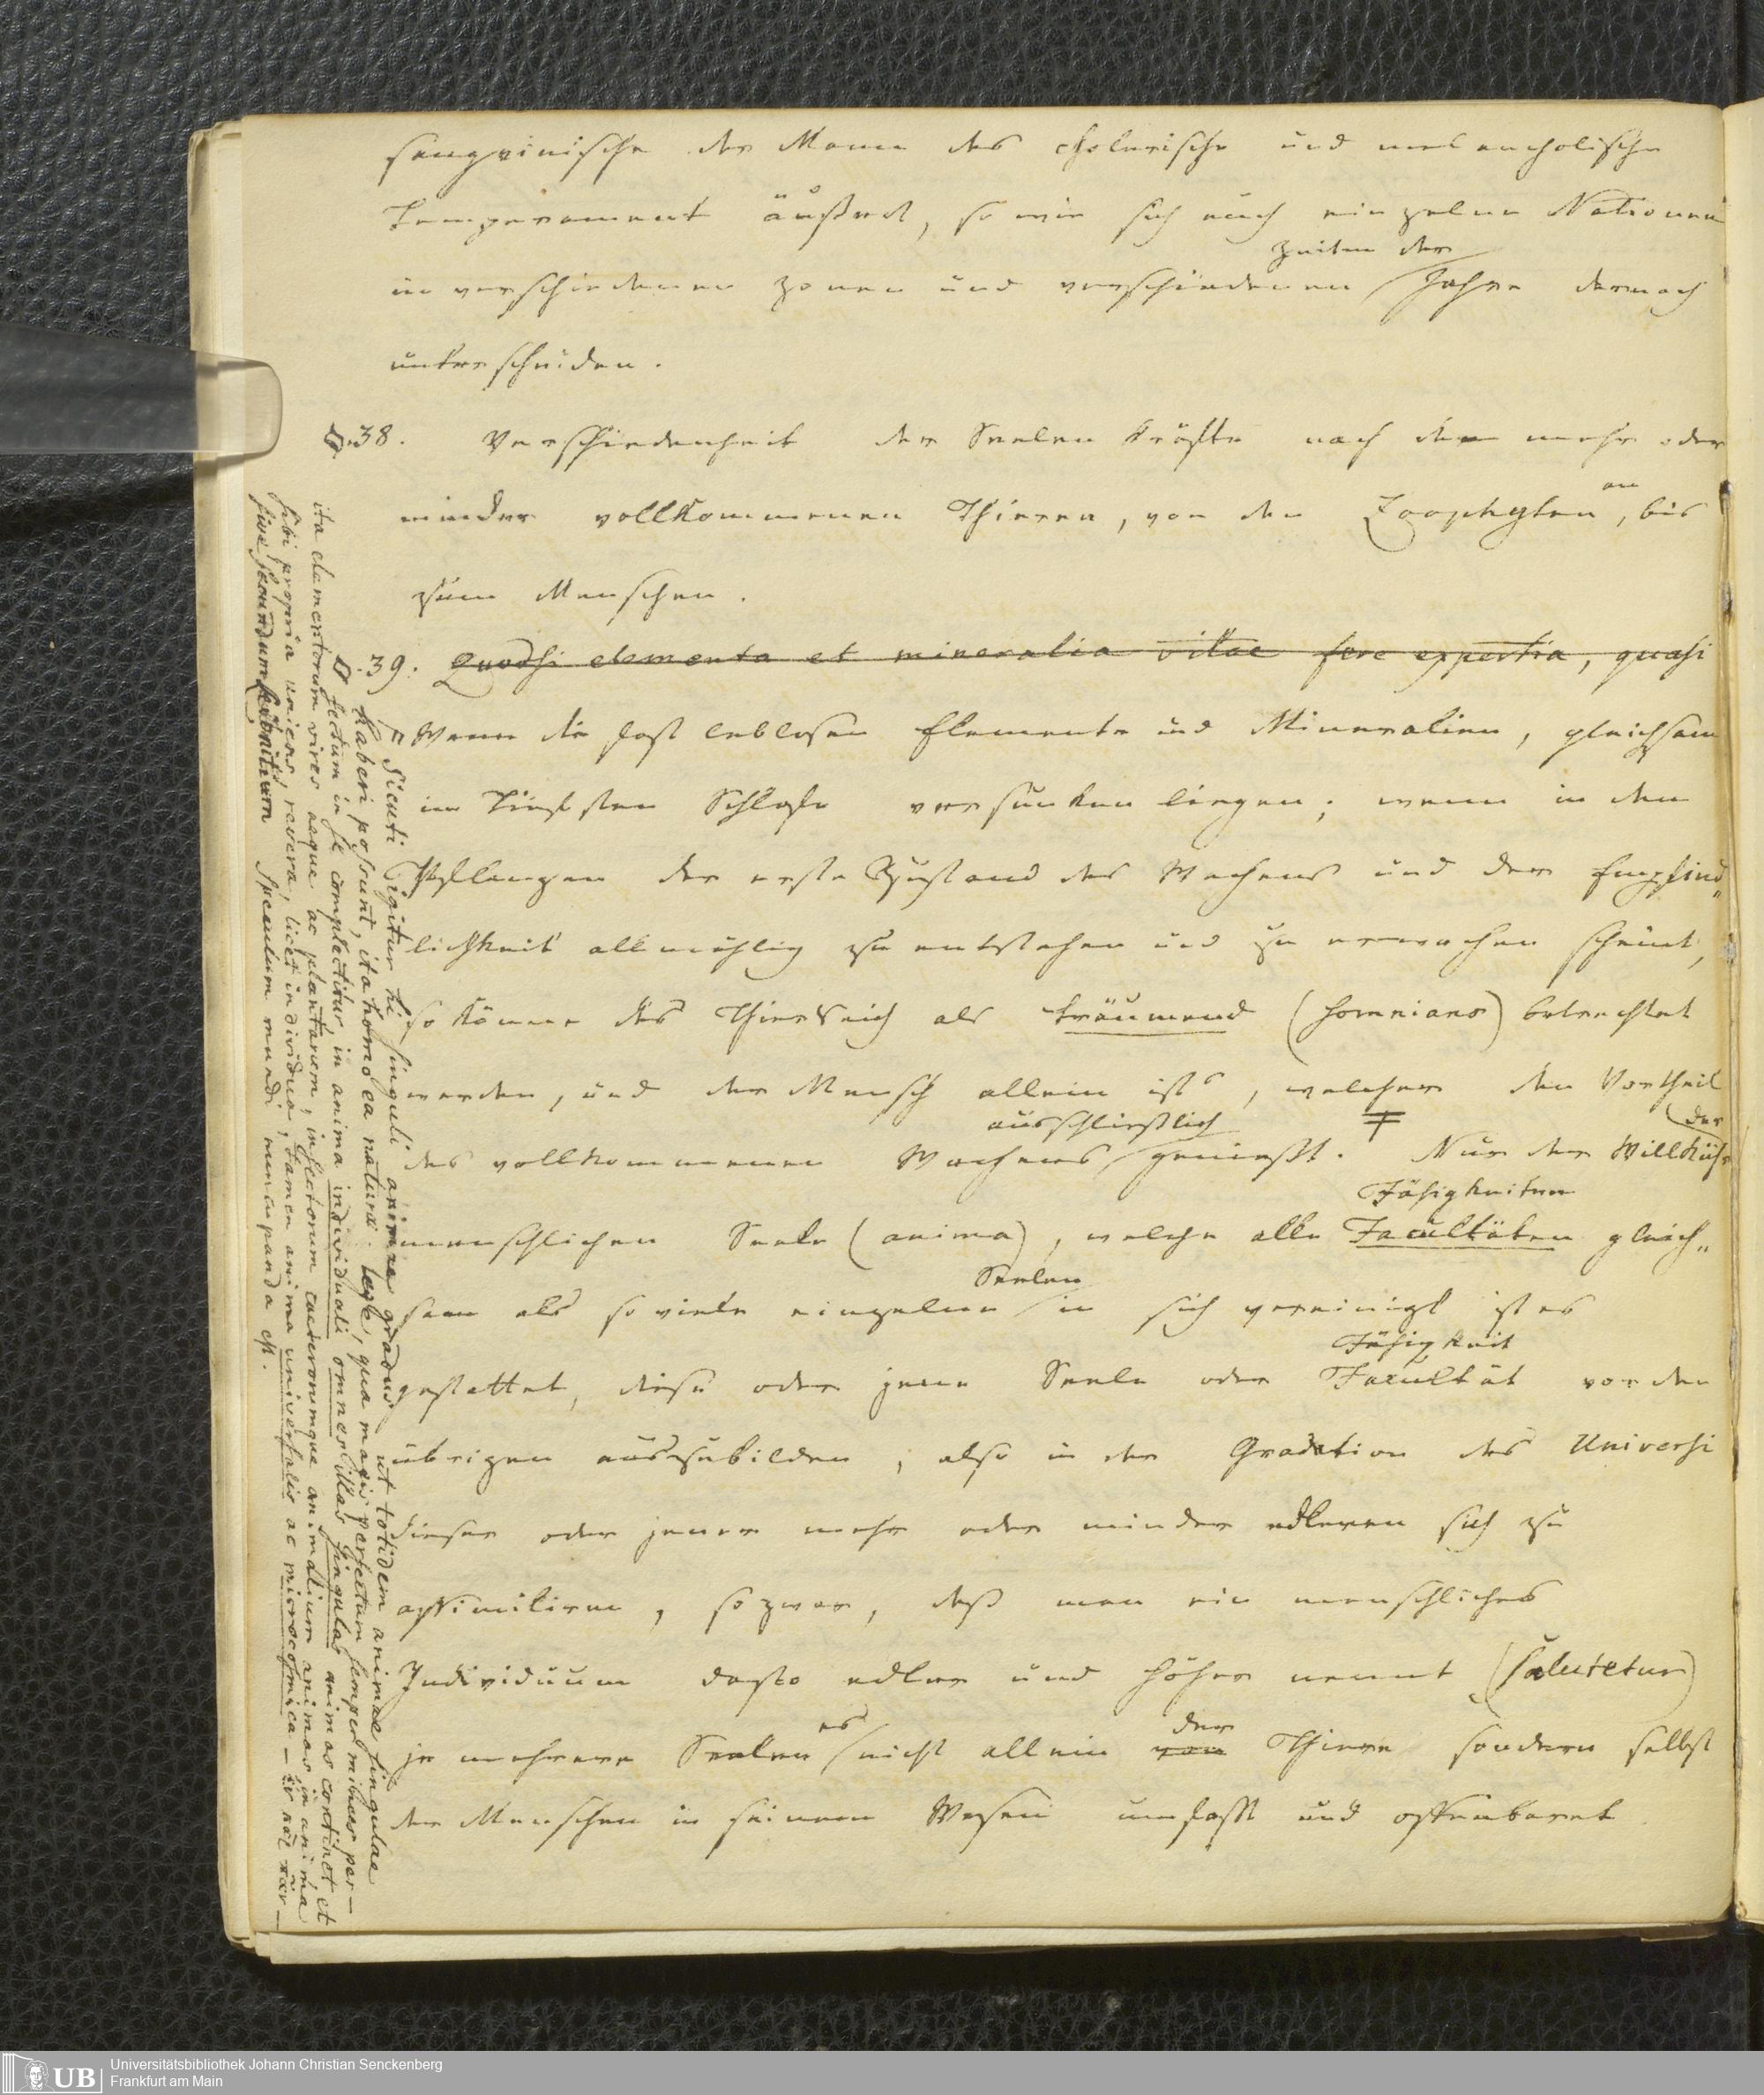 sanguinische der Mann das cholerische und melancholische
Temperament äußert, so wie sich auch einzelne Nationen
zeiten der
in verschiedenen Zonen und verschiedenen Jahre darnach
unterscheiden.
§.38. Verschiedenheit der Seelen Kräfte nach den mehr oder
minder vollkommenen Thieren, von den Zoophyten an, bis
zum Menschen.
§.39. Quodsi elementa et mineralia vitae fere expertia, quasi
Wenn die fast leblosen Elemente und Mineralien, gleichsam
im tiefsten Schlafe versunken liegen; wenn in den
Pflanzen der erste Zustand des Wachens und der Empfind„
lichkeit allmählig zu entstehen und zu erwachen scheint,
so könne das Thierreich als träumend (somnians) betrachtet
werden, und der Mensch allein ists, welcher den Vortheil
ausschließlich
des vollkommenen Wachens genießt. Nur der Willkühr
der
Fähigkeiten
menschlichen Seele (anima), welche alle Facultäten gleich„
Seelen
sam als so viele einzelne in sich vereinigt ist es
Fähigkeit
gestattet, diese oder jene Seele oder Facultät vor den
übrigen auszubilden, also in der Gradation des Universi
dieser oder jener mehr oder minder edleren sich zu
assimiliren, so zwar, daß man ein menschliches
Individuum desto edler und höher nennt (salutetur)
es der
je mehrere Seelen nicht allein von Thiere sondern selbst
der Menschen in seinem Wesen umfaßt und offenbaret
Sicuti igitur hi singuli animae gradus ut totidem animae singulae
haberi possunt, ita homo ea naturae lege, qua magis perfectum semper minus per-
fectum in se complectitur, in anima individuali omnes illas singulas animas continet et
ita elementorum vires aeque ac plantarum, insectorum caeterorumque animalium animas in anima
sibi propria uniens, revera, licet individua, tamen anima universalis ac microcosmica –
sive secundum Leibnitium speculum mundi nuncupanda est.
Universitätsbibliothek Johann Christian Senckenberg
Frankfurt am Main
UB